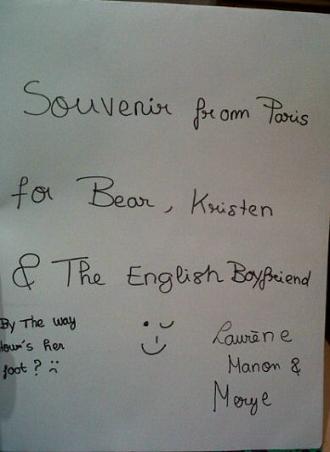 Souvenir from Paris
for Bear, Kristen
& The English Boyfriend
By The way
how's her
foot? :(
;)
Laurène
Manon &
Morye